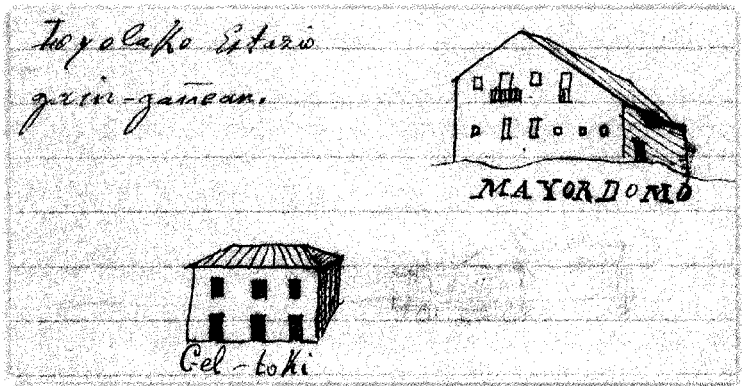 Loyolako Estazio
gain-gañean.
MAYORDOMO
Gel-toki